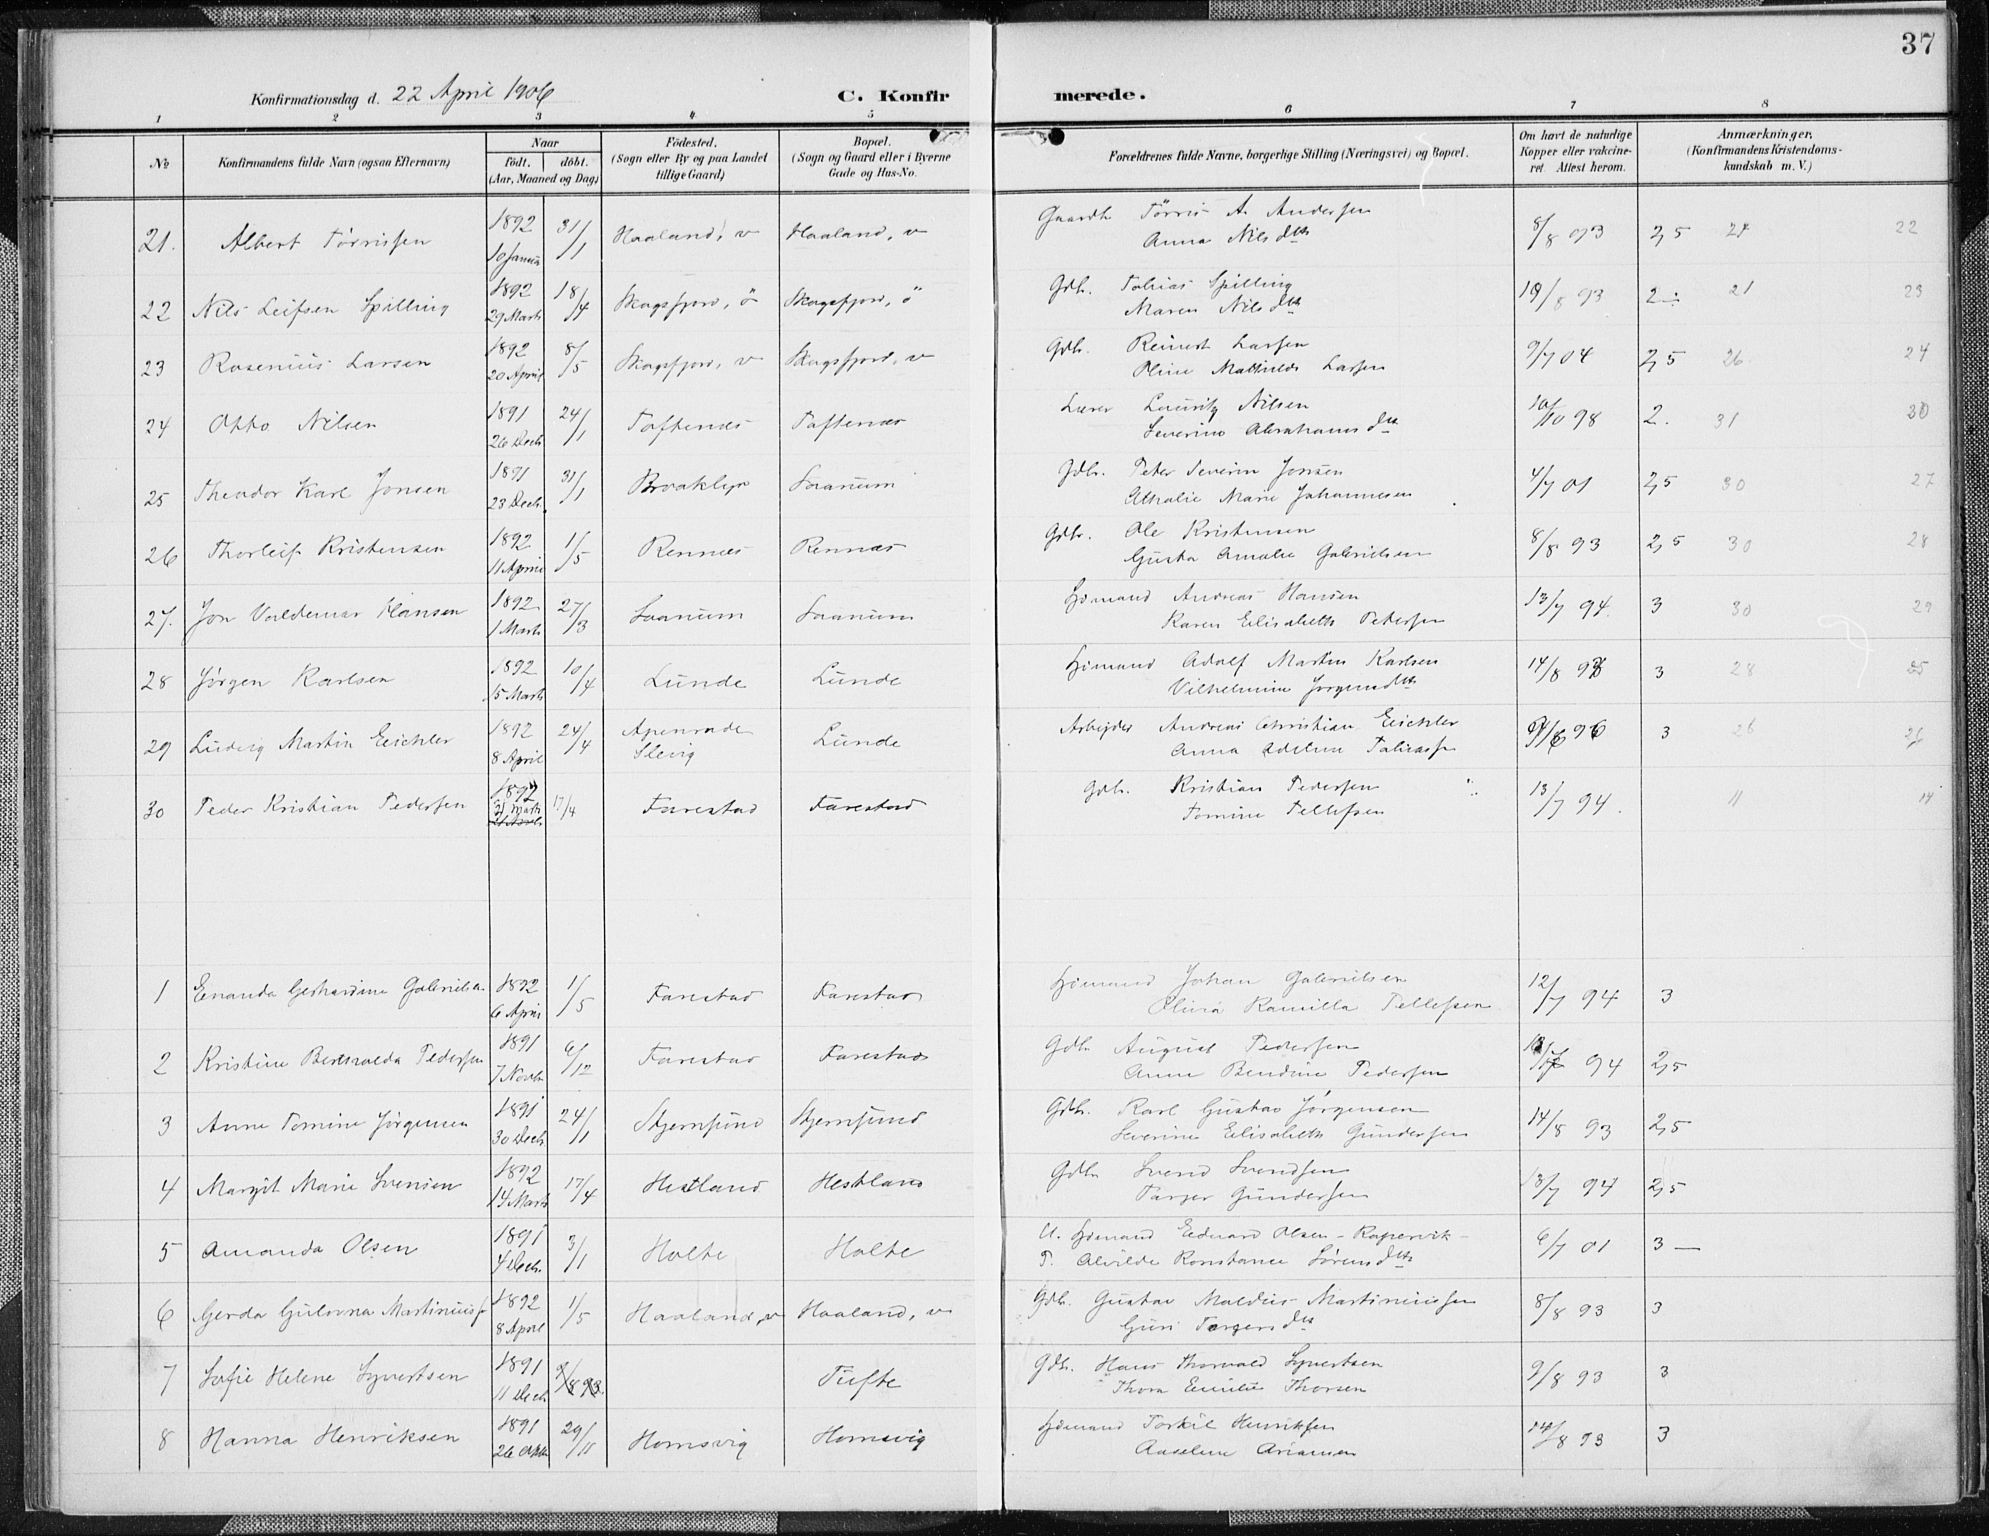 37
Konfirmationsdag d. 22 April 1906 C. Konfir merede.
1 2 3 4 5 6 7 8
No Konfirmandens fulde Navn (ogsaa Efternavn) Naar født. døbt. (Aar, Maaned og Dag) Fødested. (Sogn eller By og paa Landet tillige Gaard) Bopæl. (Sogn og Gaard eller i Byerne Gade og Hus-No. Forældrenes fulde Navne, borgerlige Stilling (Næringsvei) og Bopæl. Om havt de naturlige Kopper eller vakcineret Attest herom. Anmærkninger, (Konfirmandens Kristendomskundskab m. V.)
21. Albert Tørrissen 1892 10 Januar 31/1 Haaland, v Haaland, v Gaardb. Tørris A. Andersen 8/8 93 2,5 22
Anna Nilsdtr
22 Nils Leifsen Spilling 1892 29 Marts 18/4 Skogsfjord, ö Skogsfjord, ö Gdb. Tobias Spilling 19/8 93 2 21 23
Maren Nilsdtr
23 Rosenius Larsen 1892 20 April 8/5 Skogsfjord, v Skogsfjord, v Gdb. Reinert Larsen 9/7 04 2,5 26 24
Oline Mathilde Larsen
24 Otto Nilsen 1891 26 Decb. 24/1 Toftenes Toftenes Lærer Lauritz Nilsen 10/10 98 2. 31 30
Severine Abrahamsdtr
25 Theodor Karl Jonsen 1891 23 Decb. 31/1 Brooklyn Saanum Gdb. Peter Severin Jonsen 4/7 01 2,5 30 27
Athalie Marie Johannesen
26 Thorleif Kristensen 1892 11 April 1/5 Rennes Rennes Gdb. Ole Kristensen 8/8 93 2,5 30 28
Gusta Amalie Gabrielsen
27. Jon Valdemar Hansen 1892 1 Marts 27/3 Saanum Saanum Hjemand Andreas Hansen 13/7 94. 3 30 29
Karen Elisabeth Petersen
28 Jørgen Karlsen 1892 15 Marts 10/4 Lunde Lunde Hjemand Adolf Martin Karlsen 14/8 93 3 28 25
Vilhelmine Jørgensdtr
29 Ludvig Martin Eichler 1892 8 April 24/4 Apenrade Slesvig Lunde Arbeider Andreas Christian Eichler 96 3 26 26
Anna Adeline Tobiassen
30 Peder Kristian Pedersen 1892 21 Marts 17/4 Farestad Farestad Gdb. Kristian Pedersen 13/7 94. 11 14
Tomine Tellefsen
1 Enanda Gerhardine Gabrielsen 1892 6 April 1/5 Farestad Farestad Hjemand Johan Gabrielsen 12/7 94 3
Olivia Kamilla Tellefsen
2 Kristine Berthalda Pedersen 1891 7 Novb. 6/12 Farestad Farestad Gdb. August Pedersen 94 2,5
Anne Bendine Pedersen
3 Anne Tomine Jørgensen 1891 30 Decb. 24/1 Stjernsund Stjernsund Gdb. Karl Gustav Jørgensen 14/8 93 2,5
Severine Elisabeth Gundersen
4 Margit Marie Svensen 1892 14 Marts 17/4 Hestland Hestland Gdb. Svend Svendsen 13/7 94 2,5
Torger Gundersen
5 Amanda Olsen 1891 4 Decb. 3/1 Holte Holte U. Hjemand Edvard Olsen - Kapervik - 6/7 01 3 —
P. Alvilde Konstance Sørensdtr
6 Gerda Gulovna Martiniussen 1892 8 April 1/5 Haaland, v Haaland, v Gdb. Gustav Maldius Martiniussen 8/8 93 3
Guri Torgersdtr
7 Sofie Helene Syvertsen 1891 11 Decb. 9/8 93. Tufte Gdb. Hans Thorvald Syvertsen 9/8 93 3
Thora Emilie Thorsen
8 Hanna Henriksen 1891 26 Oktb. 29/11 Homsvig Homsvig Hjemand Torkil Henriksen 14/8 93 3
Aaselene Ariansen